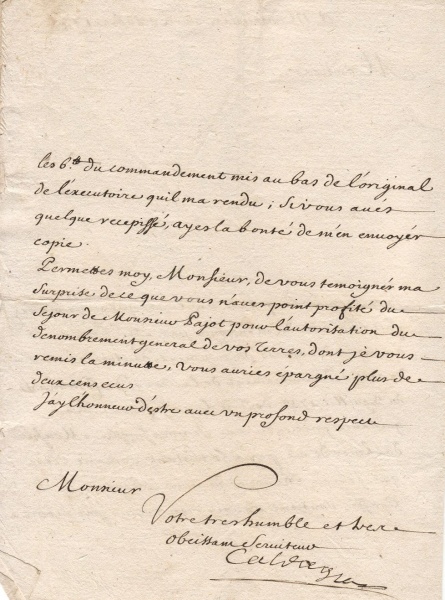 les 6.lt du commandement mis au bas de l'original
de l'executoire quil ma rendu ; si vous avés
quelque recepissé, ayes la bonté de m'en envoyér
copie.
Permettes moy, Monsieur, de vous temoignér ma
surprise de ce que vous n'aves point profité du
sejour de Monsieur Pajot pour l'autorisation du
denombrement general de vos Terres, dont je vous
remis la minutte, vous auriés épargné plus de
deux cens ecus
J'ay l'honneur d'éstre avec un profond respect
Monsieur
Votre tres humble et tres
obeissant Serviteur